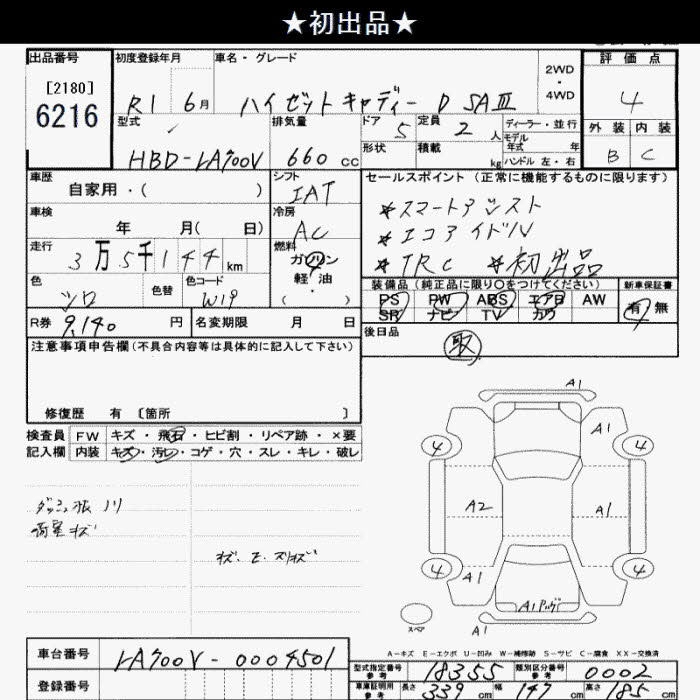 ★初出品★
出品番号 初度登録年月 車名・グレード 2WD・4WD 評価点
[2180] 6216 R1 6月 ハイゼットキャディー D SAⅢ 4
型式 排気量 ドア 5 定員 2人 ディーラー・並行 外装 内装
HBD-LA700V 660cc 形状 積載 kg モデル年式 年 ハンドル 左・右 B C
車歴 シフト セールスポイント(正常に機能するものに限ります)
自家用・( ) IAT *スマートアシスト
車検 冷房 *エコアイドル
年 月( 日) AC *TRC *初出品
走行 燃料
3万5千144km ガソリン
軽・油
( ・ )
色 色替 色コード 装備品(純正品に限り○をつけてください) 新車保証書
シロ W19 PS PW ABS エアB AW 有 無
SR ナビ TV カワ
R券 9,140円 名変期限 月 日 後日品
取
注意事項申告欄(不具合内容等は具体的に記入して下さい)
修復歴 有 〔箇所 〕
検査員 FW キズ・飛石・ヒビ割・リペア跡・×要
記入欄 内装 キズ・汚レ・コゲ・穴・スレ・キレ・破レ
キズ
A1
A1
4 4
A2 A1
4 4
A1
A1
A1
スペア
A-キズ E-エクボ U-凹み W-補修跡 S-サビ C-腐食 XX-交換済
車台番号 LA700V-0004501
登録番号
型式指定番号 参考 18355 類別区分番号 参考 0002
車庫証明用 参考 長さ 339cm 幅 147cm 高さ 185cm